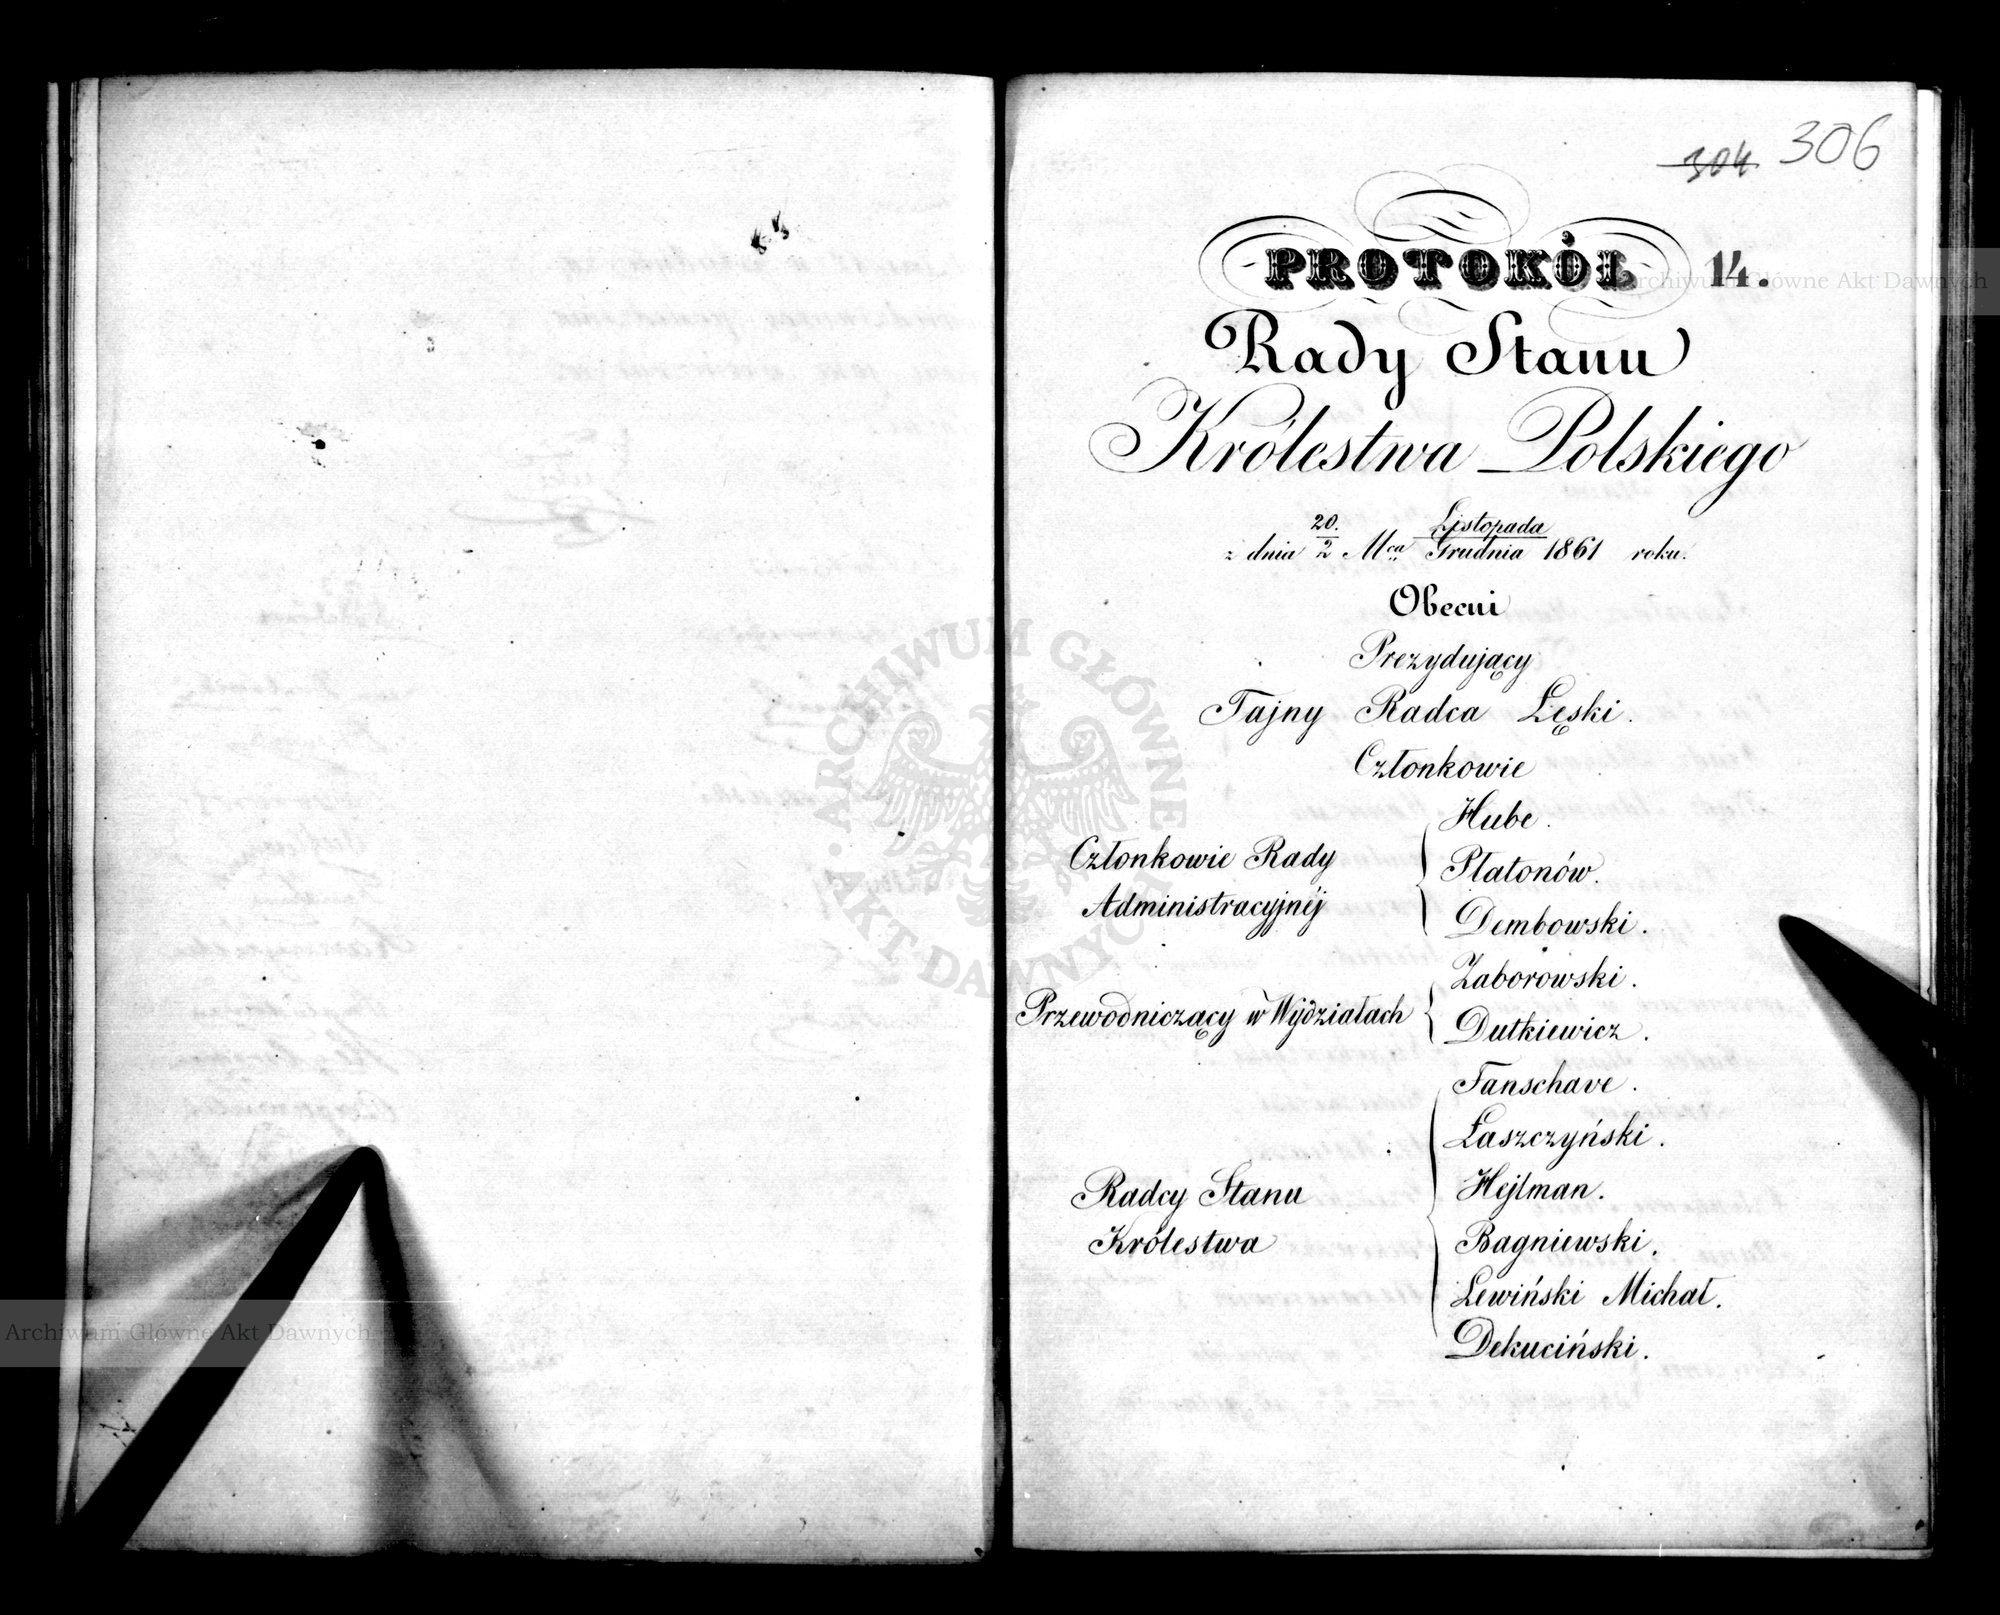 304. 306
PROTOKÓŁ 14.
Rady Stanu
Królestwa Polskiego
z dnia 20./2 Mca Listopada/Grudnia 1861 roku.
Obecni
Prezydujący
Tajny Radca Łęski.
Członkowie
Członkowie Rady Administracyjnéj
Hube.
Płatonów.
Dembowski.
Przewodniczący w Wydziałach
Zaborowski.
Dutkiewicz.
Radcy Stanu Królestwa
Fanschave.
Łaszczyński.
Hejlman.
Bagniewski.
Lewiński Michał.
Dekuciński.
Archiwum Główne Akt Dawnych
ARCHIWUM GŁÓWNE AKT DAWNYCH
Archiwum Główne Akt Dawnych